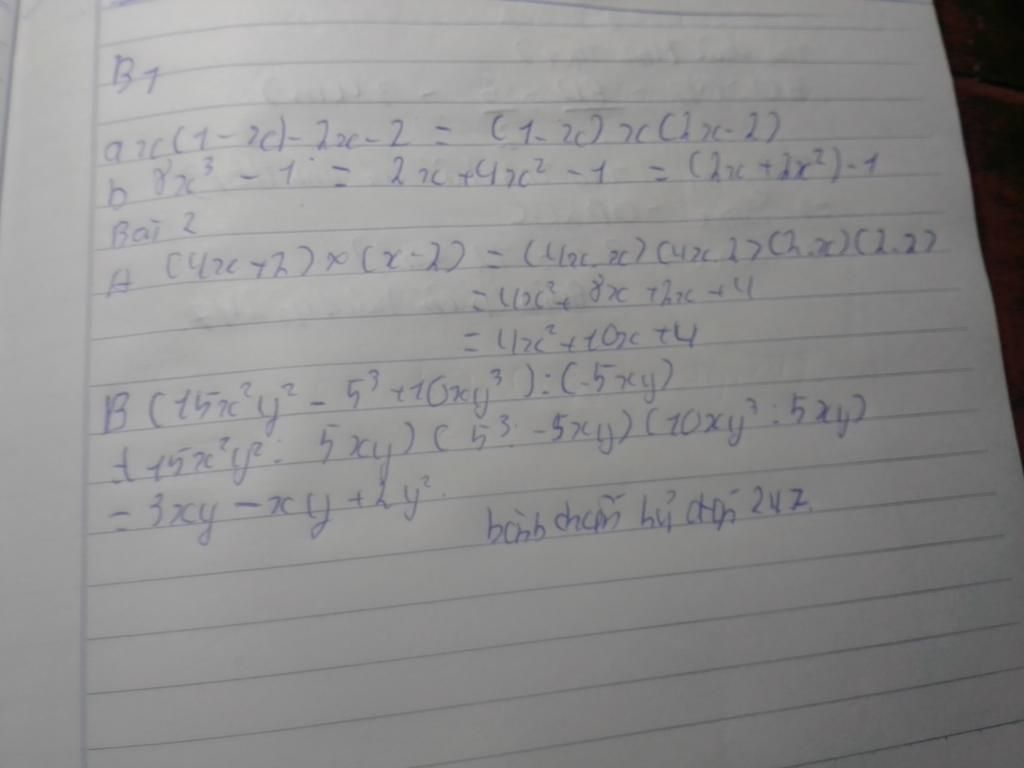 B1
a x(1-x)-2x-2 = (1-x) x (2x-2)
b 8x³ - 1 = 2x+4x² -1 = (2x+2x²)-1
Bài 2
A (4x+2)×(x-2) = (4x.x)(4x.2)(2.x)(2.2)
= 4x²+8x+2x+4
= 4x²+10x+4
B (15x²y² - 5³+10xy³):(-5xy)
15x²y²: 5xy)(5³: -5xy)(10xy³:5xy)
= 3xy - xy + 2y²
247